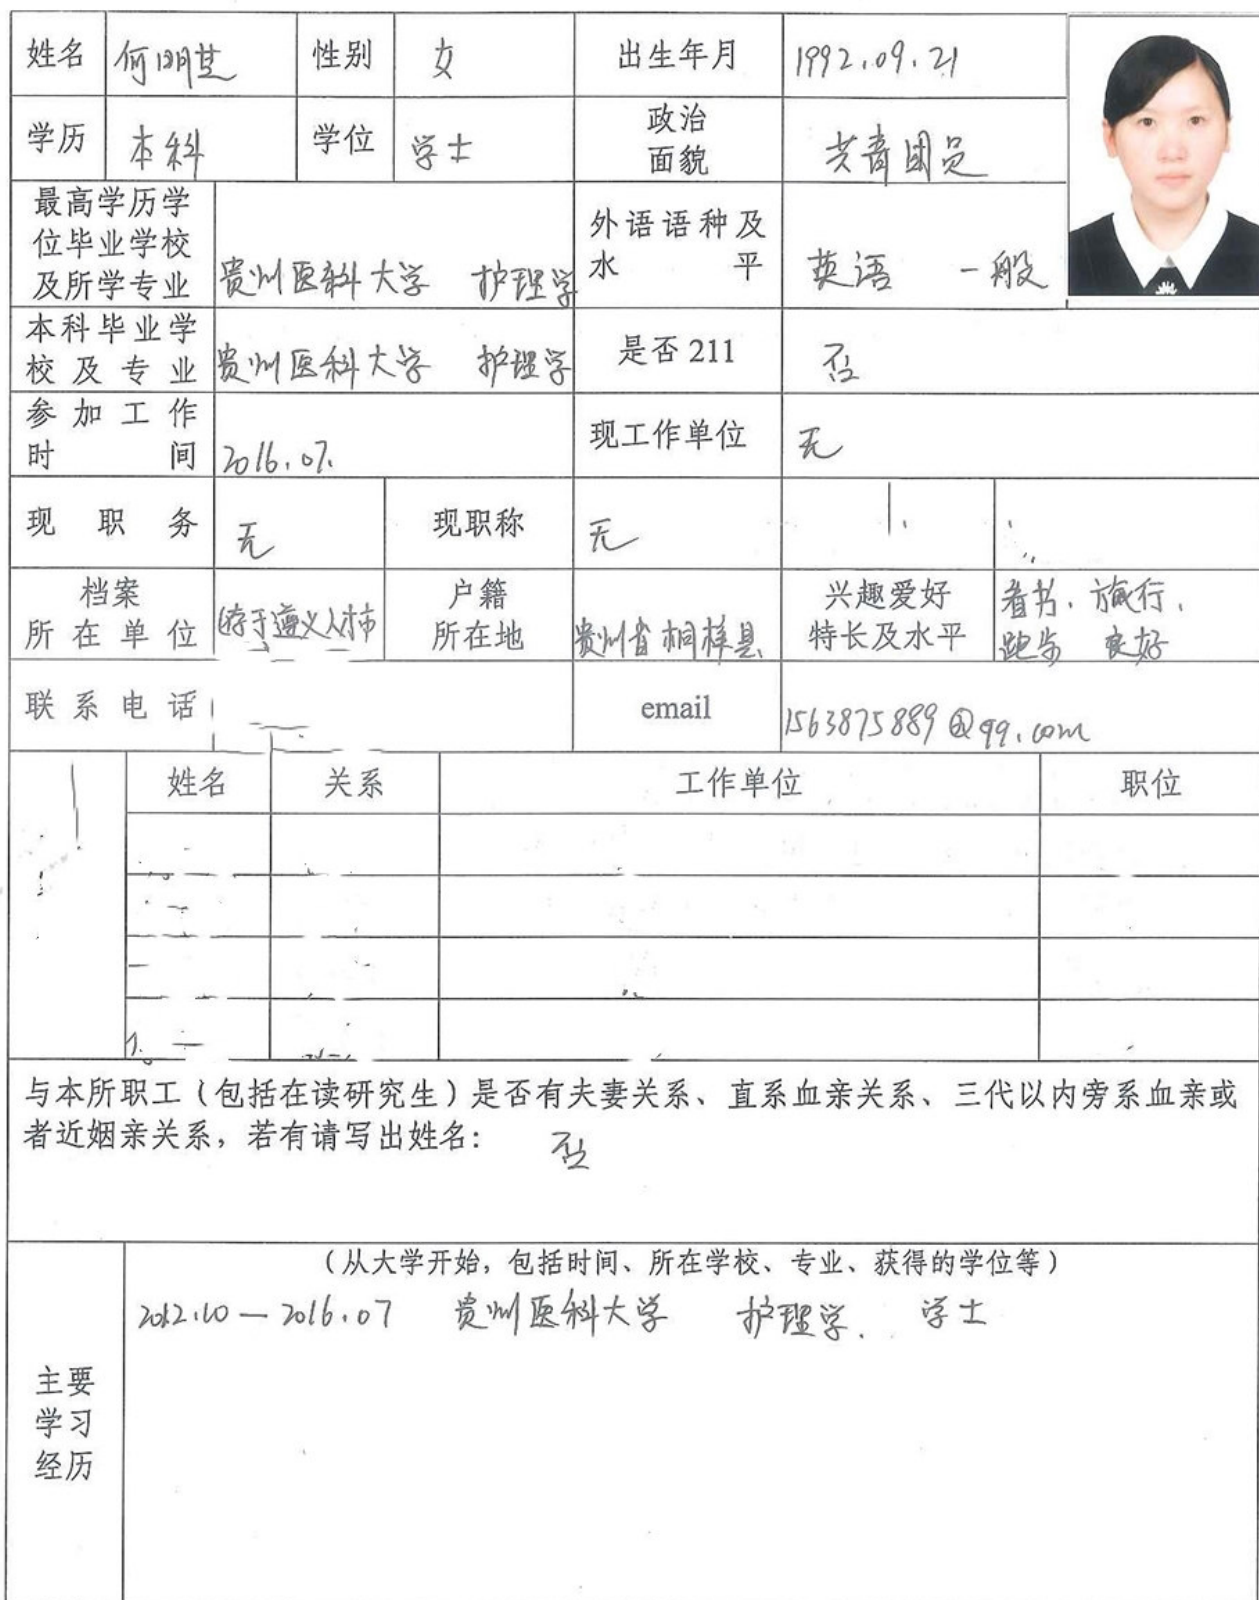 姓名 何明芝 性别 女 出生年月 1992.09.21
学历 本科 学位 学士 政治面貌 共青团员
最高学历学
位毕业学校
及所学专业 贵州医科大学 护理学 外语语种及水平 英语 一般
本科毕业学
校及专业 贵州医科大学 护理学 是否211 否
参加工作
时间 2016.07. 现工作单位 无
现职务 无 现职称 无
档案
所在单位 存于遵义人才市 户籍
所在地 贵州省桐梓县 兴趣爱好
特长及水平 看书、旅行、
跑步 良好
联系电话 email 1563875889@qq.com
姓名 关系 工作单位 职位
与本所职工(包括在读研究生)是否有夫妻关系、直系血亲关系、三代以内旁系血亲或
者近姻亲关系,若有请写出姓名: 否
(从大学开始,包括时间、所在学校、专业、获得的学位等)
2012.10—2016.07 贵州医科大学 护理学. 学士
主要
学习
经历